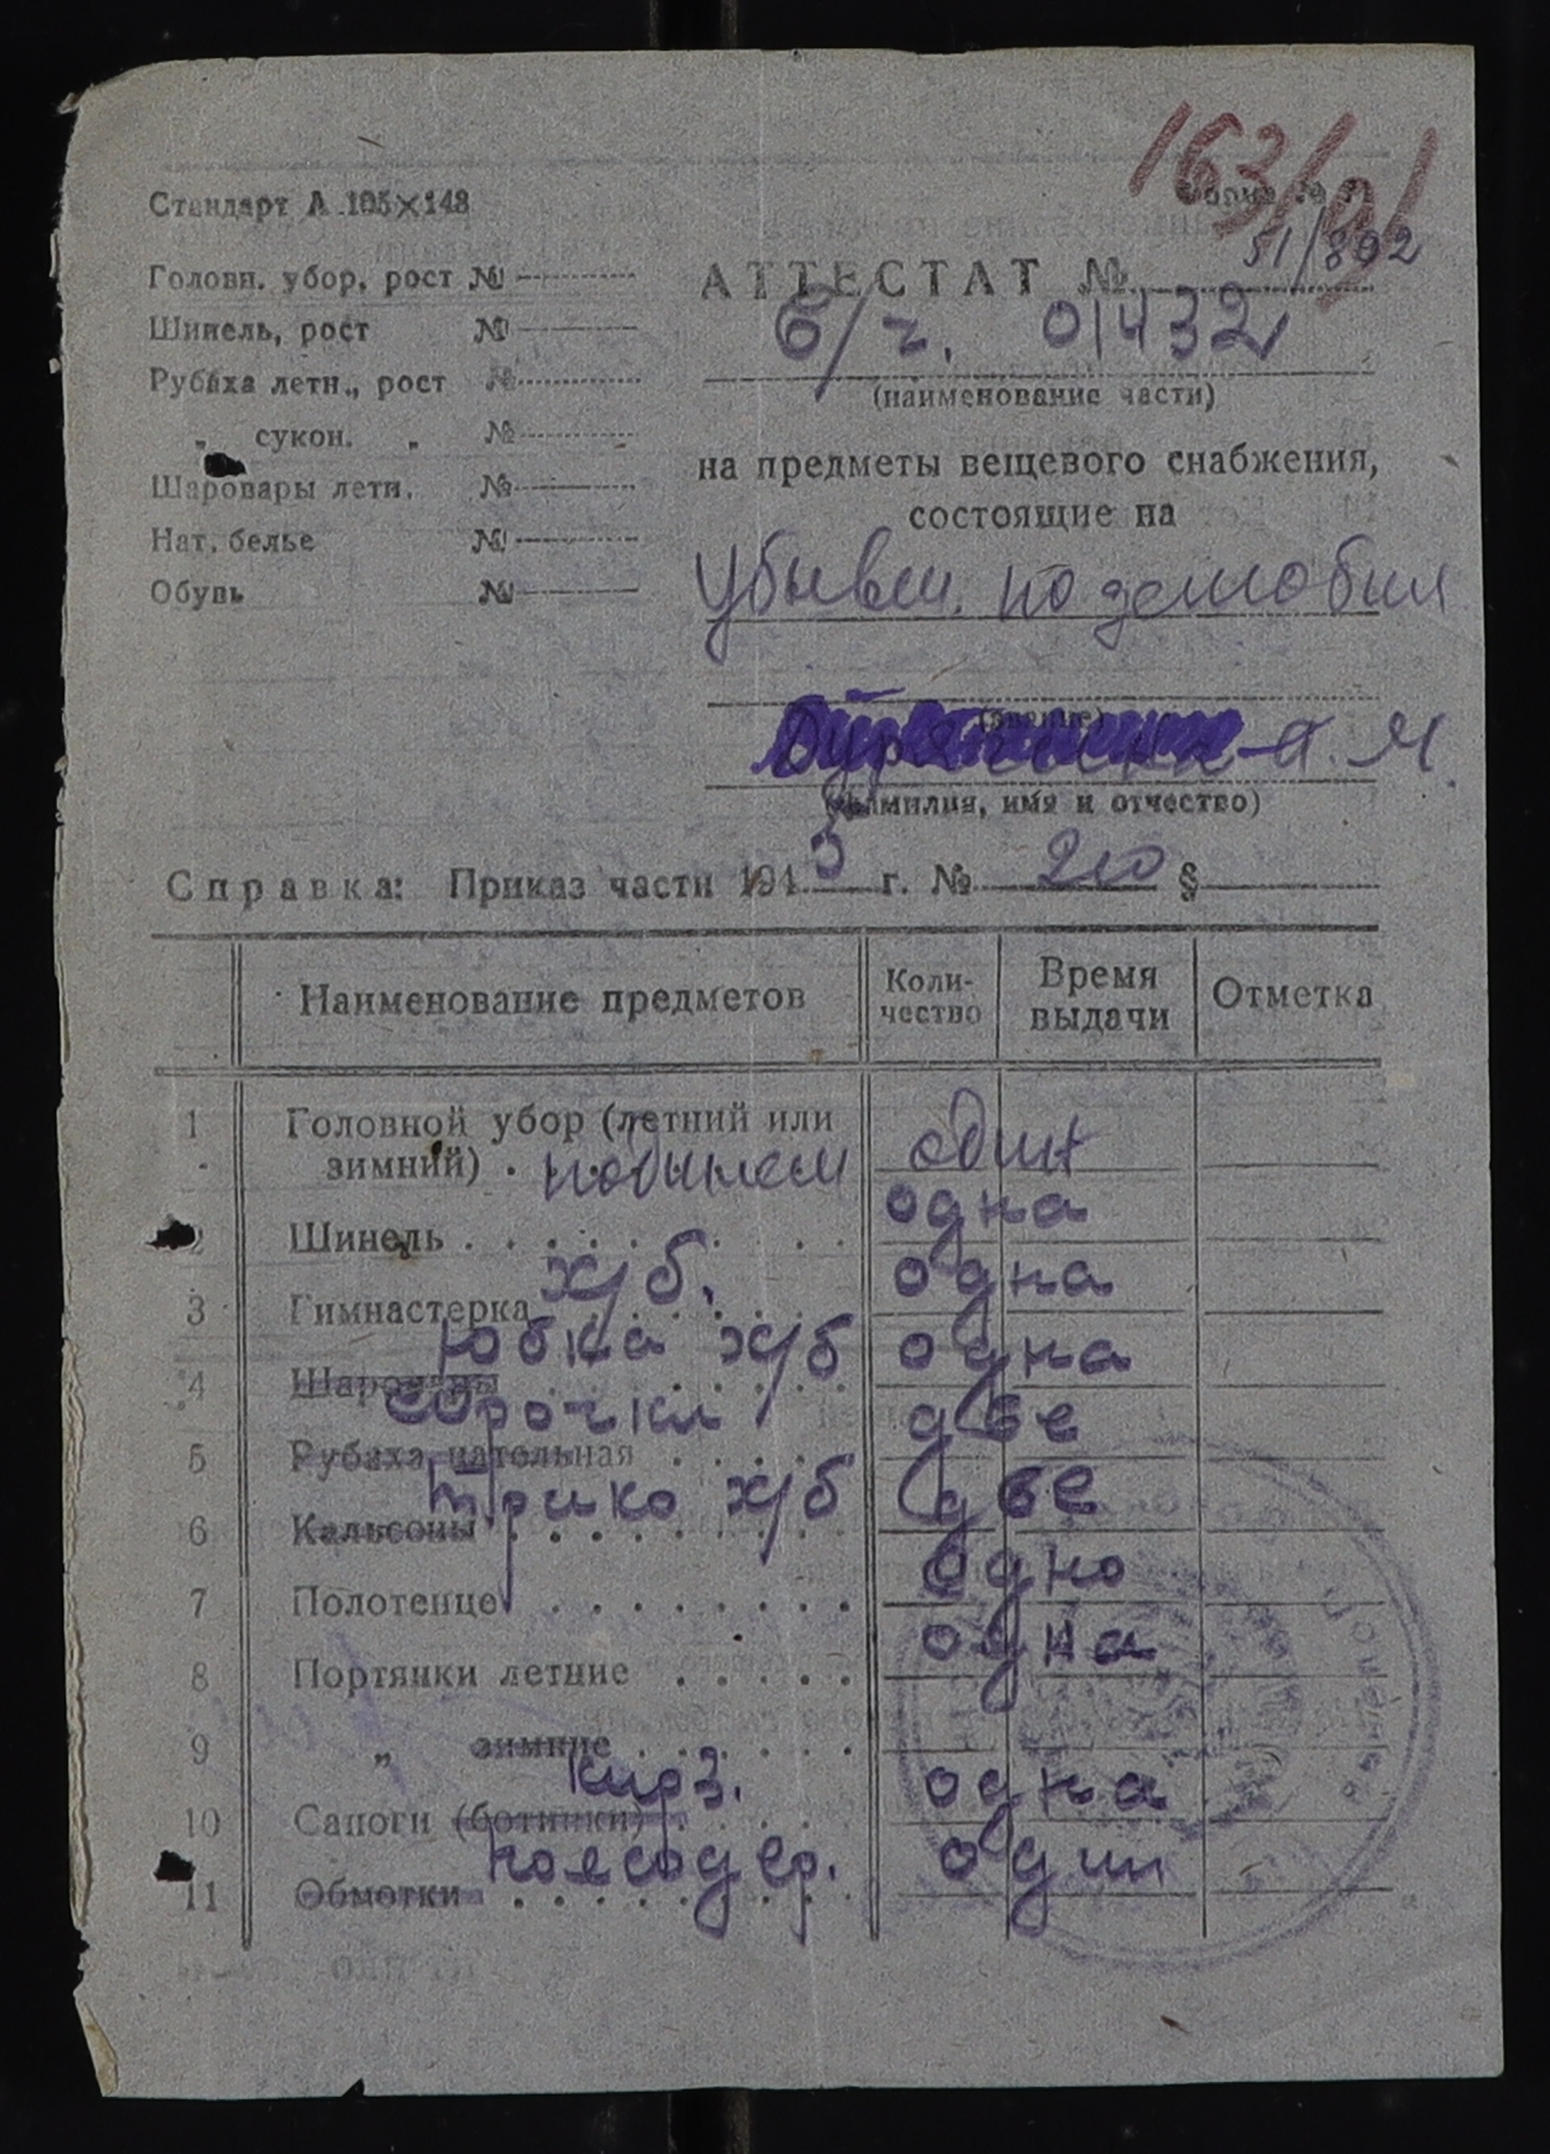 163/
Стандарт А 105×148
Форма №
51/802
Головн. убор, рост №
АТТЕСТАТ №
Шинель, рост №
в/ч. 01432
Рубаха летн., рост №
(наименование части)
„ сукон. „ №
на предметы вещевого снабжения,
Шаровары летн. №
состоящие на
Нат. белье №
Обувь №
убывш. по демобил
(звание)
А. М.
(фамилия, имя и отчество)
Справка: Приказ части 1945 г. № 210 §
Наименование предметов Коли- Время Отметка
чество выдачи
1 Головной убор (летний или
зимний) . один
2 Шинель . . . . . . . . одна
3 Гимнастерка х/б. одна
4 Шаровары юбка х/б одна
5 Рубаха нательная сорочки две
6 Кальсоны трико х/б две
7 Полотенце . . . . . . . . одно
8 Портянки летние . . . . . одна
9 „ зимние . . . . . .
10 Сапоги (ботинки) кирз. одна
11 Обмотки поясодер. один